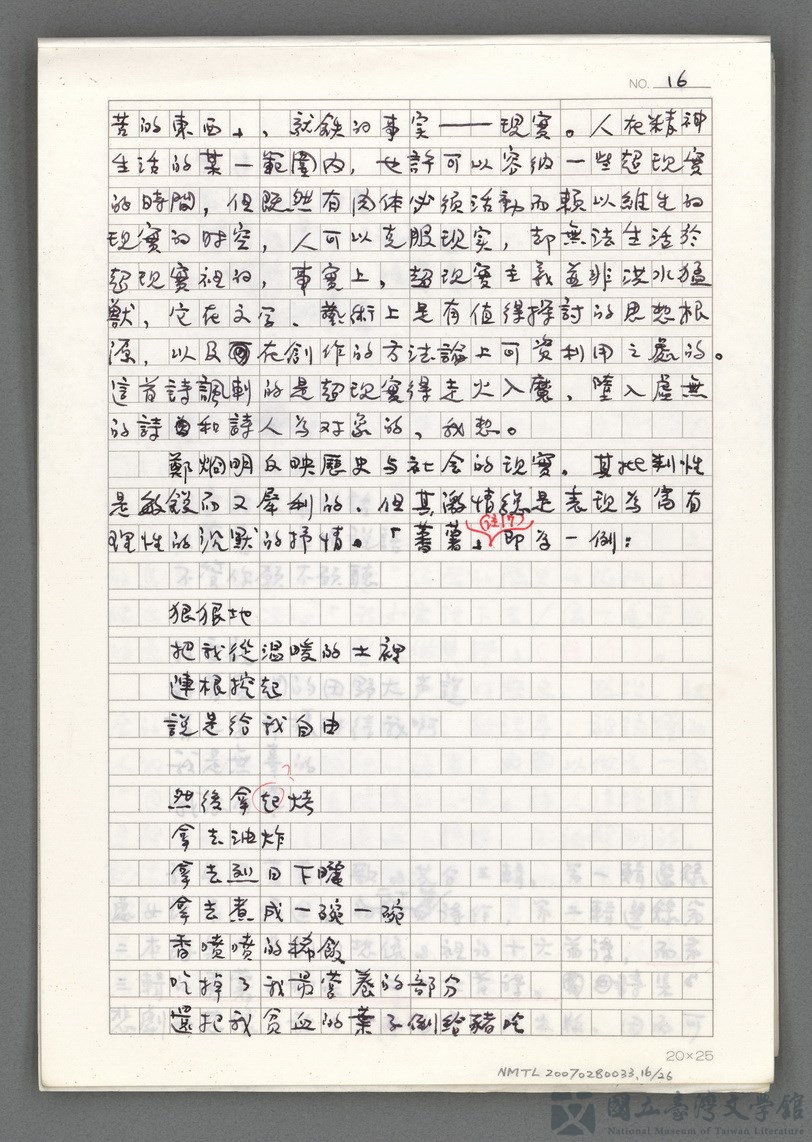 NO. 16
苦的東西」、就鉄的事实——現實。人在精神
生活的某一範圍內,也許可以容納一些超現實
的時間,但既然有肉体必須活動而賴以維生的
現實的時空,人可以克服現实,却無法生活於
超現實裡的,事實上,超現實主義並非洪水猛
獸,它在文学、藝術上是有值得探討的思想根
源,以及在創作的方法論上可資利用之處的。
這首詩諷刺的是超現實得走火入魔、墮入虛無
的詩和詩人為对象的,我想。
鄭烱明反映歷史与社会的現實。其批判性
是敏銳而又犀利的,但其激情總是表現為富有
理性的沉默的抒情。「蕃薯」即為一例:
狠狠地
把我從温暖的土裡
連根挖起
說是給我自由
?
然後拿起烤
拿去油炸
拿去烈日下曬
拿去煮成一碗一碗
香噴噴的稀飯
吃掉了我最營養的部分
還把我貧血的葉子倒給豬吃
20×25
NMTL 20070280033,16/26
國立臺灣文學館
National Museum of Taiwan Literature